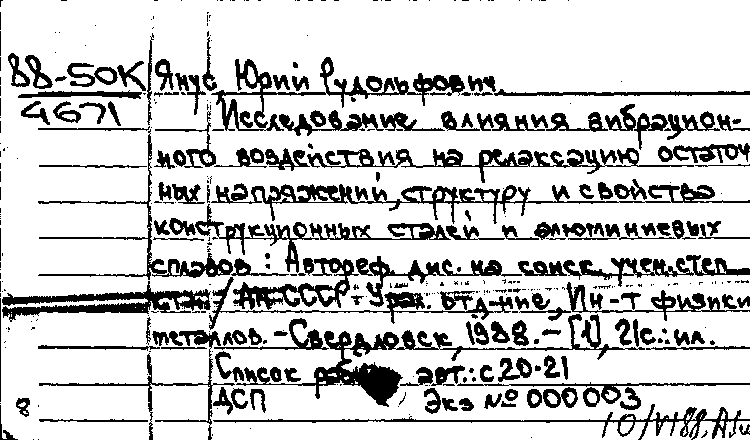 88-50К Янус, Юрий Рудольфович.
4671
Исследование влияния вибрацион-
ного воздействия на релаксацию остаточ
ных напряжений, структуру и свойства
конструкционных сталей и алюминиевых
сплавов : Автореф. дис. на соиск. учен. степ
АН СССР. Урал. отд-ние, Ин-т физики
металлов. - Свердловск, 1988. - [1], 21с.: ил.
Список работ авт.: с.20-21
ДСП Экз № 000003
8
10/VI88.